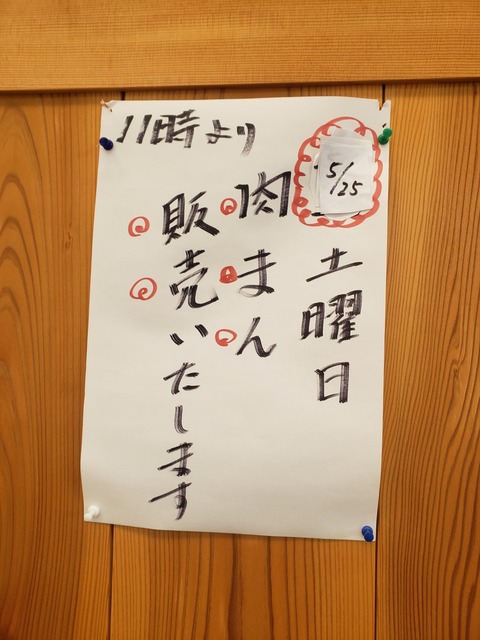 11時より
5/25
土曜日
肉まん
販売いたします